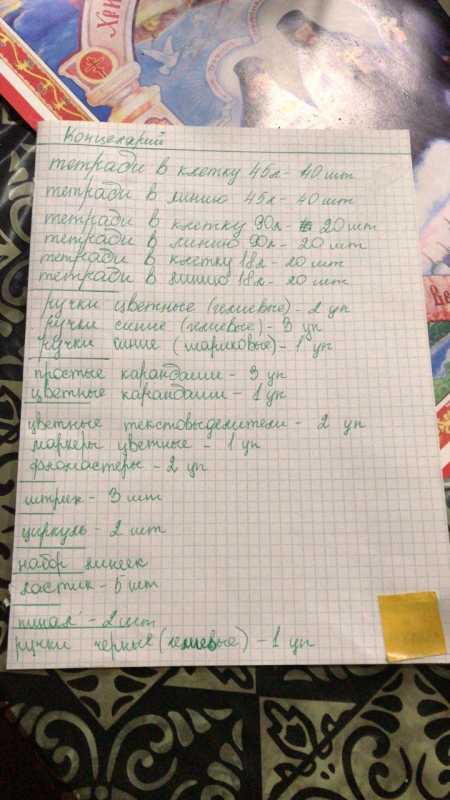 Хри
Концеларий
тетради в клетку 45л - 40 шт
тетради в линию 45л - 40 шт
тетради в клетку 90л - 20 шт
тетради в линию 90л - 20 шт
тетради в клетку 18л - 20 шт
тетради в линию 18л - 20 шт
ручки цветные (гелиевые) - 2 уп
ручки синие (гелиевые) - 3 уп
ручки синие (шариковые) - 1 уп
простые карандаши - 3 уп
цветные карандаши - 1 уп
цветные текстовыделители - 2 уп
маркеры цветные - 1 уп
фломастеры - 2 уп
штрек - 3 шт
циркуль - 2 шт
набор линеек
ластик - 5 шт
пинал - 2 шт
ручки черные (гелиевые) - 1 уп